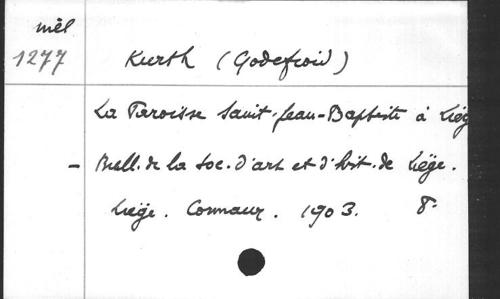 mêl
1277
Kurth (Godefroid)
La Paroisse Saint-Jean-Baptiste à Liég
- Bull. de la Soc. d'art et d'hist. de Liége.
Liége. Cormaux. 1903. 8°